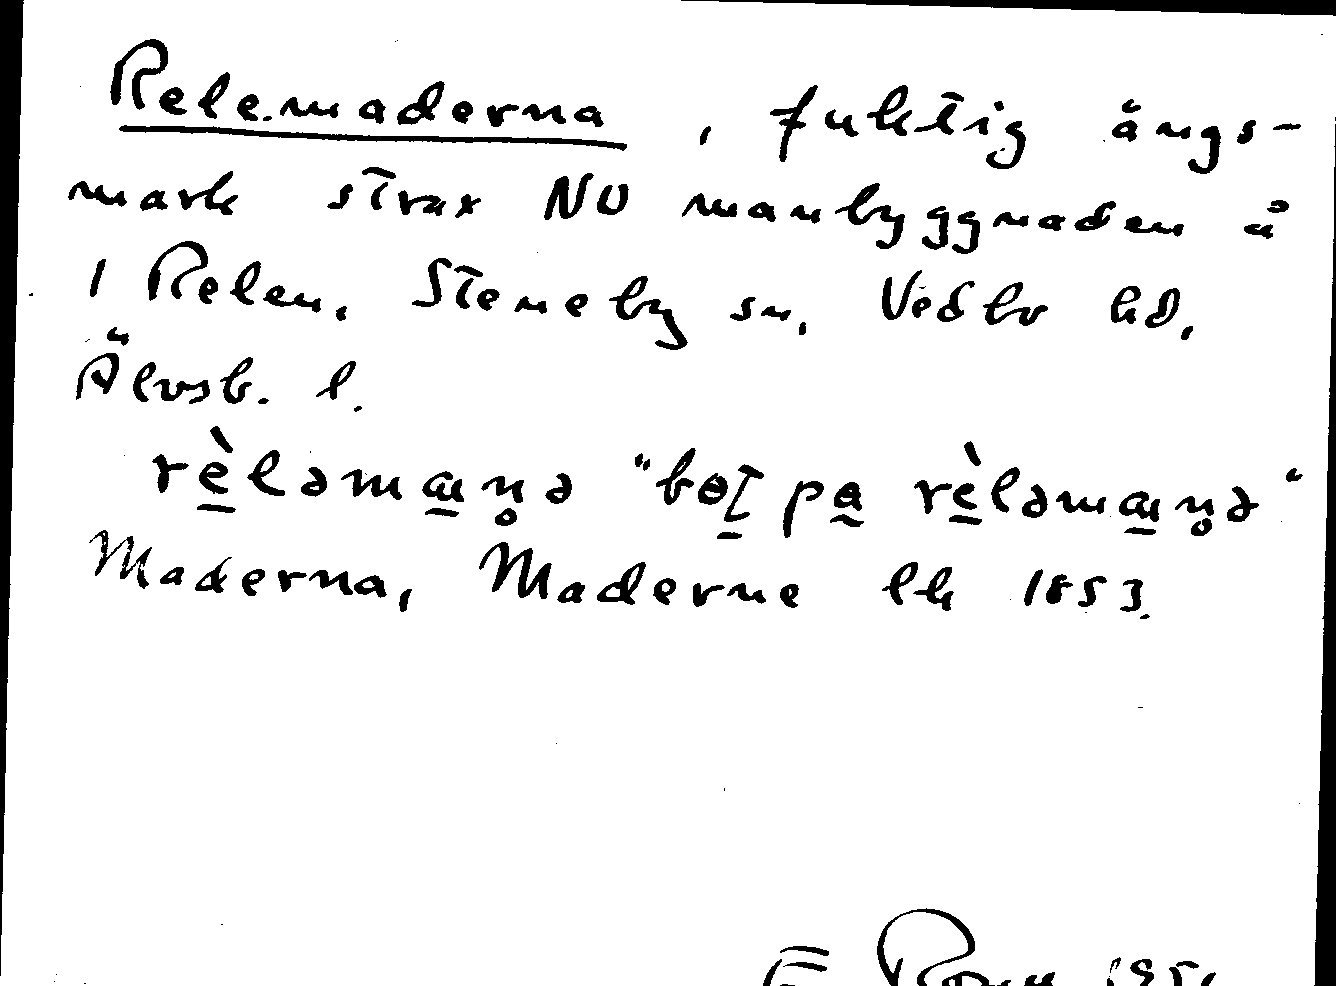 Relemaderna, fuktig ängs-
mark strax NO manbyggnaden å
1 Relen, Steneby sn, Vedbo hd,
Älvsb. l.
rèləman̥ə "bət pa rèləman̥ə"
Maderna, Maderne lk 1853.